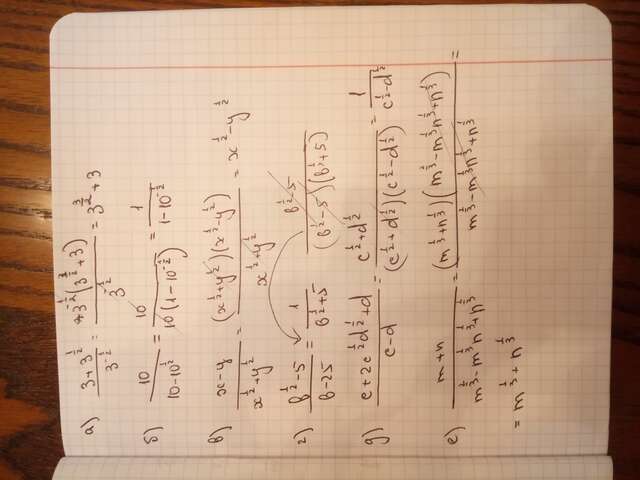 а) (3+3^½)/(3^-½) = (3^-½(3^(3/2)+3))/(3^-½) = 3^(3/2)+3
б) 10/(10-10^½) = 10/(10(1-10^-½)) = 1/(1-10^-½)
в) (x-y)/(x^½+y^½) = ((x^½+y^½)(x^½-y^½))/(x^½+y^½) = x^½-y^½
г) (в^½-5)/(в-25) = 1/(в^½+5) (в^½-5)/((в^½-5)(в^½+5))
д) (c+2c^½d^½+d)/(c-d) = (c^½+d^½)/((c^½+d^½)(c^½-d^½)) = 1/(c^½-d^½)
е) (m+n)/(m^⅔-m^⅓n^⅓+n^⅔) = ((m^⅓+n^⅓)(m^⅔-m^⅓n^⅓+n^⅔))/(m^⅔-m^⅓n^⅓+n^⅔) =
= m^⅓+n^⅓